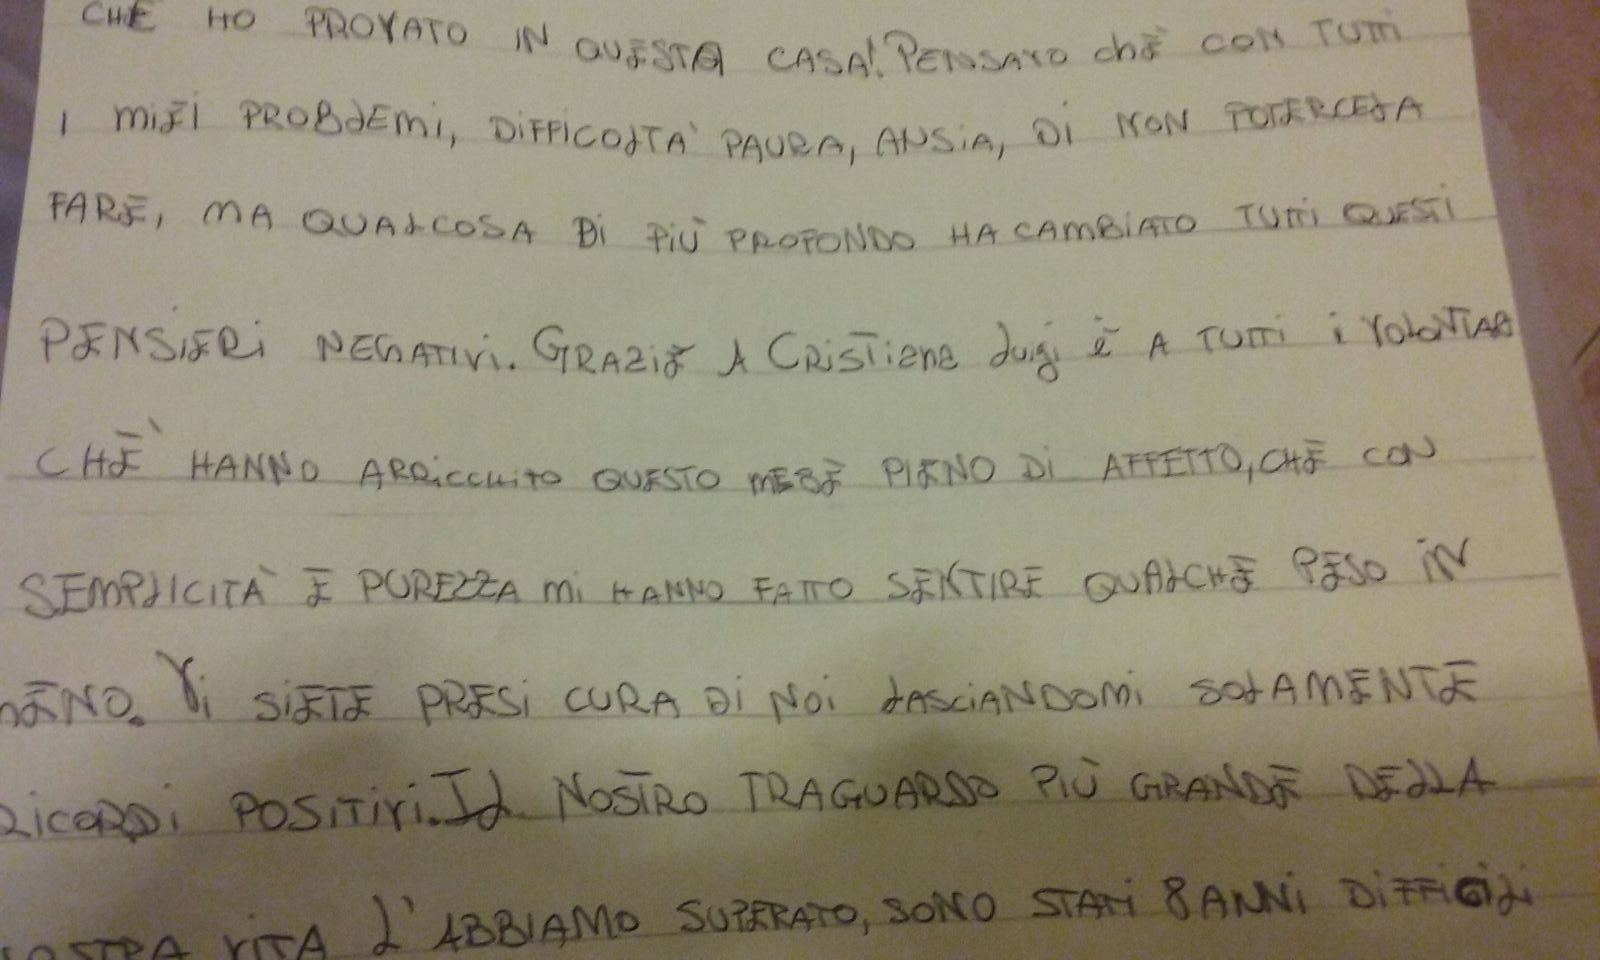 CHE HO PROVATO IN QUESTA CASA! PENSAVO chE CON TUTTI
I MIEI PROBLEMI, DIFFICOLTA' PAURA, ANSIA, DI NON POTERCELA
FARE, MA QUALCOSA DI PIÙ PROFONDO HA CAMBIATO TUTTI QUESTI
PENSIERI NEGATIVI. GRAZIE A CRISTIANA Luigi è A TUTTI i VOLONTIAR
CHE' HANNO ARRICCHITO QUESTO MESE PIENO DI AFFETTO, CHE CON
SEMPLICITÀ E PUREZZA MI HANNO FATTO SENTIRE QUALCHE PESO IN
MENO. VI SIETE PRESI CURA DI NOI LASCIANDOMI SOLAMENTE
RICORDI POSITIVI. IL NOSTRO TRAGUARDO PIÙ GRANDE DELLA
NOSTRA VITA L'ABBIAMO SUPERATO, SONO STATI 8 ANNI DIFFICILI